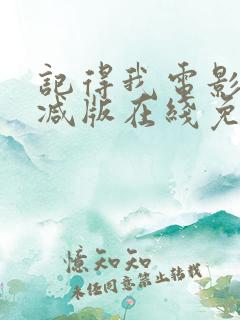 記得我电影
减版在綫免
憶知知
未经同意禁止转载